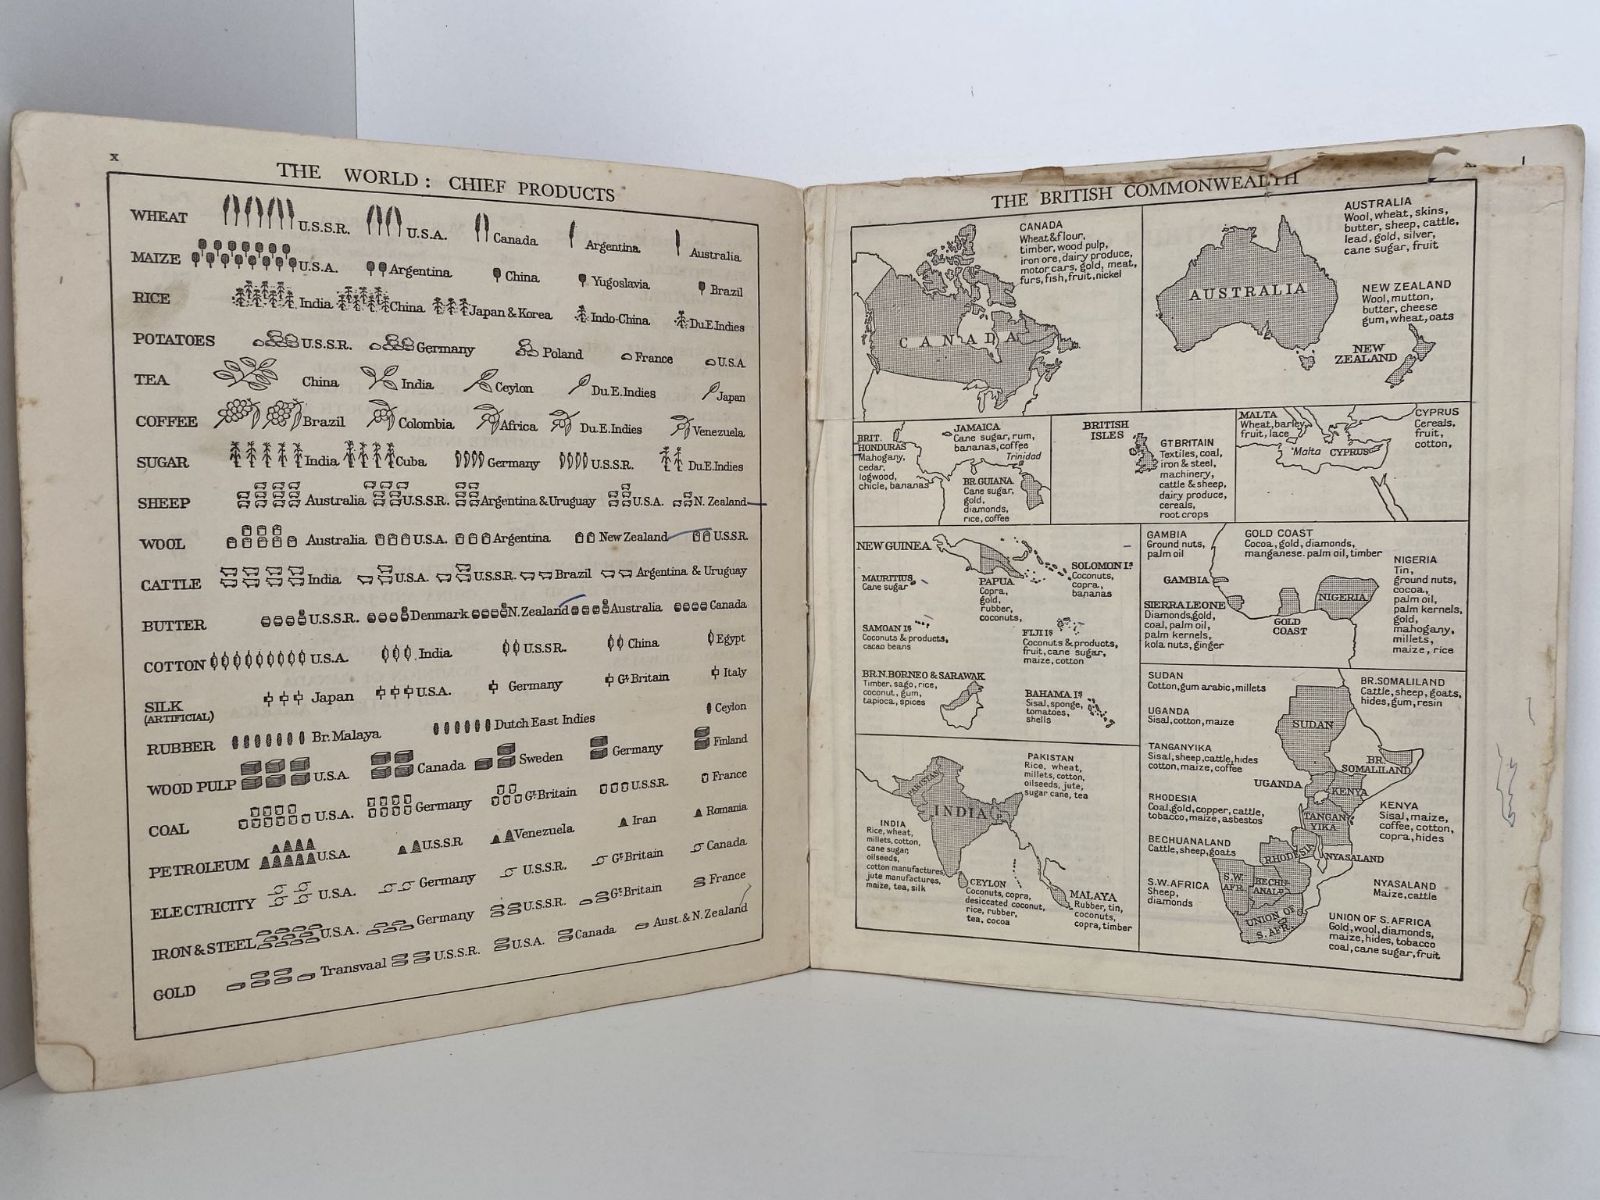 x
THE WORLD: CHIEF PRODUCTS
WHEAT U.S.S.R. U.S.A. Canada Argentina Australia
MAIZE U.S.A. Argentina China Yugoslavia Brazil
RICE India China Japan & Korea Indo-China Du.E.Indies
POTATOES U.S.S.R. Germany Poland France U.S.A
TEA China India Ceylon Du.E.Indies Japan
COFFEE Brazil Colombia Africa Du.E.Indies Venezuela
SUGAR India Cuba Germany U.S.S.R. Du.E.Indies
SHEEP Australia U.S.S.R. Argentina & Uruguay U.S.A. N. Zealand
WOOL Australia U.S.A. Argentina New Zealand U.S.S.R.
CATTLE India U.S.A. U.S.S.R. Brazil Argentina & Uruguay
BUTTER U.S.S.R. Denmark N. Zealand Australia Canada
COTTON U.S.A. India U.S.SR. China Egypt
SILK (ARTIFICIAL) Japan U.S.A. Germany Gt Britain Italy
RUBBER Br. Malaya Dutch East Indies Ceylon
WOOD PULP U.S.A. Canada Sweden Germany Finland
COAL U.S.A. Germany Gt Britain U.S.S.R. France
PETROLEUM U.S.A. U.S.S.R Venezuela Iran Romania
ELECTRICITY U.S.A. Germany U.S.S.R. Gt Britain Canada
IRON & STEEL U.S.A. Germany U.S.S.R. Gt Britain France
GOLD Transvaal U.S.S.R. U.S.A. Canada Aust. & N. Zealand
1
THE BRITISH COMMONWEALTH
CANADA
Wheat & flour,
timber, wood pulp,
iron ore, dairy produce,
motor cars, gold, meat,
furs, fish, fruit, nickel
CANADA
AUSTRALIA
Wool, wheat, skins,
butter, sheep, cattle,
lead, gold, silver,
cane sugar, fruit
AUSTRALIA
NEW ZEALAND
Wool, mutton,
butter, cheese
gum, wheat, oats
NEW
ZEALAND
BRIT.
HONDURAS
Mahogany,
cedar,
logwood,
chicle, bananas
JAMAICA
Cane sugar, rum,
bananas, coffee
Trinidad
BR. GUIANA
Cane sugar,
gold,
diamonds,
rice, coffee
BRITISH
ISLES
GT BRITAIN
Textiles, coal,
iron & steel,
machinery,
cattle & sheep,
dairy produce,
cereals,
root crops
MALTA
Wheat, barley,
fruit, lace
Malta
CYPRUS
CYPRUS
Cereals,
fruit,
cotton,
NEW GUINEA
MAURITIUS
Cane sugar
PAPUA
Copra,
gold,
rubber,
coconuts,
SOLOMON Is
Coconuts,
copra,
bananas
SAMOAN Is
Coconuts & products,
cacao beans
FIJI Is
Coconuts & products,
fruit, cane sugar,
maize, cotton
BR. N. BORNEO & SARAWAK
Timber, sago, rice,
coconut, gum,
tapioca, spices
BAHAMA Is
Sisal, sponge,
tomatoes,
shells
GAMBIA
Ground nuts,
palm oil
GOLD COAST
Cocoa, gold, diamonds,
manganese. palm oil, timber
GAMBIA
SIERRA LEONE
Diamonds, gold,
coal, palm oil,
palm kernels,
kola nuts, ginger
GOLD
COAST
NIGERIA
NIGERIA
Tin,
ground nuts,
cocoa,
palm oil,
palm kernels,
gold,
mahogany,
millets,
maize, rice
PAKISTAN
INDIA
PAKISTAN
Rice, wheat,
millets, cotton,
oilseeds, jute,
sugar cane, tea
INDIA
Rice, wheat,
millets, cotton,
cane sugar,
oilseeds,
cotton manufactures,
jute manufactures,
maize, tea, silk
CEYLON
Coconuts, copra,
desiccated coconut,
rice, rubber,
tea, cocoa
MALAYA
Rubber, tin,
coconuts,
copra, timber
SUDAN
Cotton, gum arabic, millets
UGANDA
Sisal, cotton, maize
TANGANYIKA
Sisal, sheep, cattle, hides
cotton, maize, coffee
RHODESIA
Coal, gold, copper, cattle,
tobacco, maize, asbestos
BECHUANALAND
Cattle, sheep, goats
S.W. AFRICA
Sheep,
diamonds
BR. SOMALILAND
Cattle, sheep, goats,
hides, gum, resin
SUDAN
BR.
SOMALILAND
UGANDA
KENYA
TANGAN
YIKA
RHODESIA
NYASALAND
S.W.
AFR.
BECHU
ANALD
UNION OF
S. AFR.
KENYA
Sisal, maize,
coffee, cotton,
copra, hides
NYASALAND
Maize, cattle
UNION OF S. AFRICA
Gold, wool, diamonds,
maize, hides, tobacco
coal, cane sugar, fruit